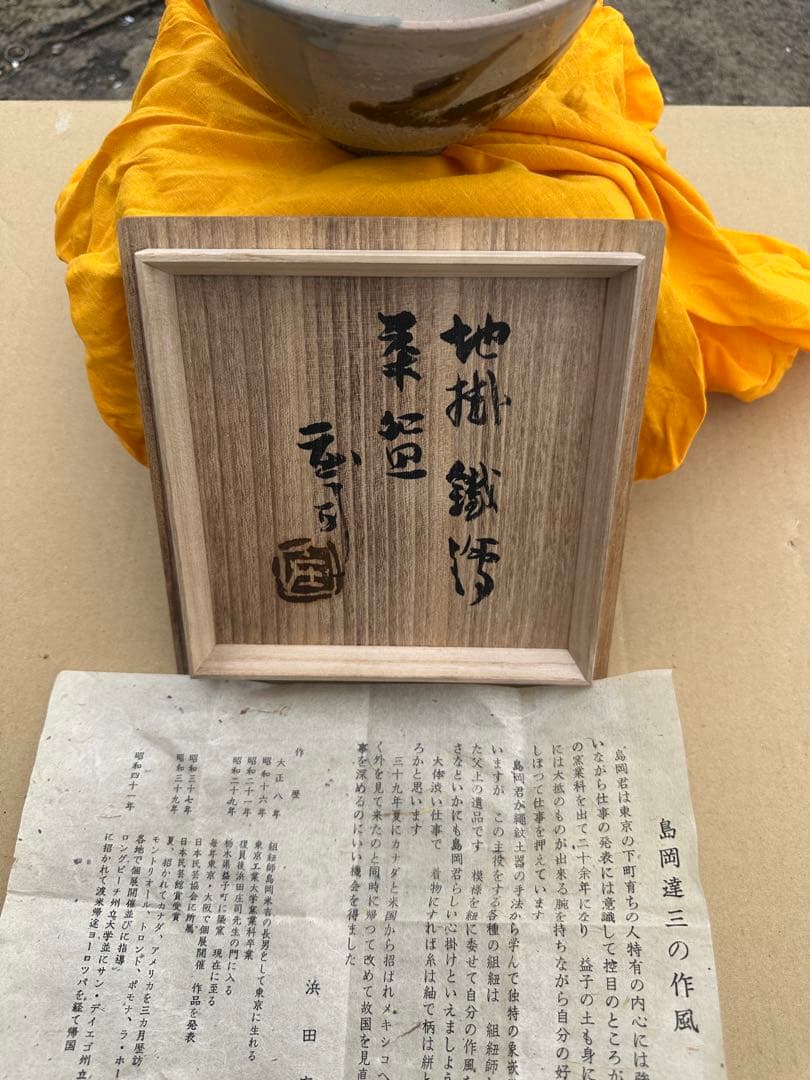 地掛 鐵濡
菓盌
庄司
庄
島岡達三の作風
島岡君は東京の下町育ちの人特有の内心には強
いながら仕事の発表には意識して控目のところが
の窯業科を出て二十余年になり 益子の土も身に
には大抵のものが出来る腕を持ちながら自分の好
しぼつて仕事を押えています
島岡君が縄紋土器の手法から学んで独特の象嵌
いますが この主役をする各種の組紐は 組紐師
た父上の遺品です 模様を紐に委せて自分の作風
さなどいかにも島岡君らしい心掛けといえましよう
大体渋い仕事で 着物にすれば糸は紬で柄は絣と
ろかと思います
三十九年夏にカナダと米国から招ばれメキシコへ
く外を見て来たのと同時に帰つて改めて故国を見直
事を深めるのにいい機会を得ました
浜田
作歴
大正八年 組紐師島岡米吉の長男として東京に生れる
昭和十六年 東京工業大学窯業科卒業
昭和二十一年 復員後浜田庄司先生の門に入る
昭和二十九年 栃木県益子町に築窯 現在に至る
毎年東京・大阪で個展開催 作品を発表
日本民芸協会に所属
昭和三十七年 日本民芸館賞受賞
昭和三十九年 夏、招かれてカナダ、アメリカを三カ月歴訪
モントリオール、トロント、ポモナ、ラ・ホー
各地で個展開催並びに指導
昭和四十一年 ロングビーチ州立大学並にサン・デイエゴ州立
に招かれて渡米帰途ヨーロツパを経て帰国